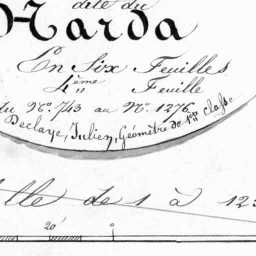 dite du
Harda
En Six Feuilles
4ème Feuille
du N.º 743 au N.º 1276
Declaye, Julien, Géomètre de 1ère classe
lle de 1 à 125
20' 0